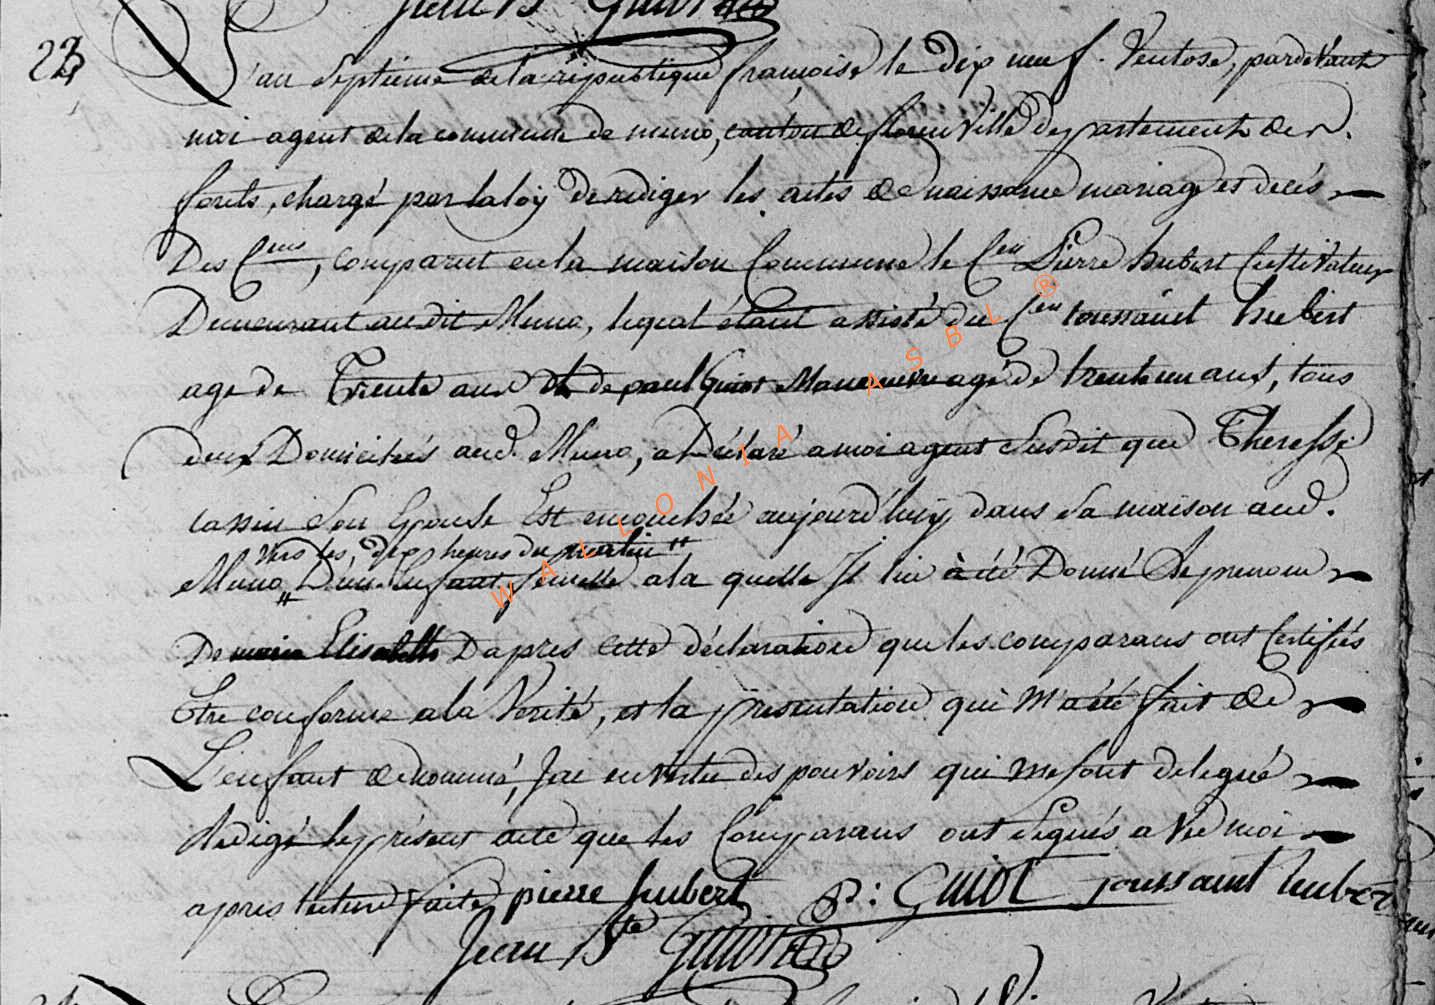 Jean Bte Guiot
23
L'an Septième de la république françoise le dix neuf Ventose, pardevant
moi agent de la commune de muno, canton de florenville departement des
forêts, chargé par la loÿ de rediger les actes de naissance mariage et décès
Des Cens, comparut en la maison Commune le Cen Pierre hubert Cultivateur
Demeurant audit Muno, lequel étant assisté du Cen toussaint hubert
age de Trente ans et de paul Guiot Manoeuvre agé de trente un ans, tous
deux Domiciliés aud. Muno, a Déclaré a moi agent Susdit que Theresse
cassin Son Epouse Est encouchée aujourd'huÿ dans Sa maison aud.
vers les dix heures du matin "
Muno " D'un Enfant femelle a la quelle Il lui à été Donné Le prenom
De marie Elisabeth D'apres cette déclaration que les comparans ont Certifiés
Etre conforme a la Verité, et la présentation qui M'a été fait de
L'enfant dénommé, J'ai en vertu des pouvoirs qui me sont delegué
Redigé le présent acte que les Comparans ont signés avec moi
apres lecture faite pierre hubert P: Guiot toussaint hubert
Jean Bte Guiot
WALLONIA ASBL ®